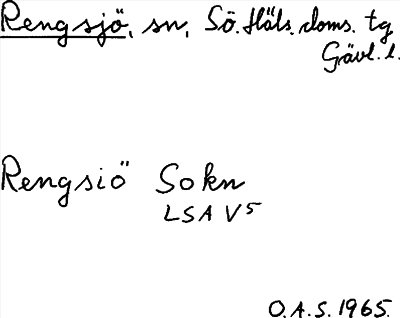 Rengsjö, sn, Sö. Häls. doms. tg
Gävl. l.
Rengsiö Sokn
LSA V5
O.A.S. 1965.